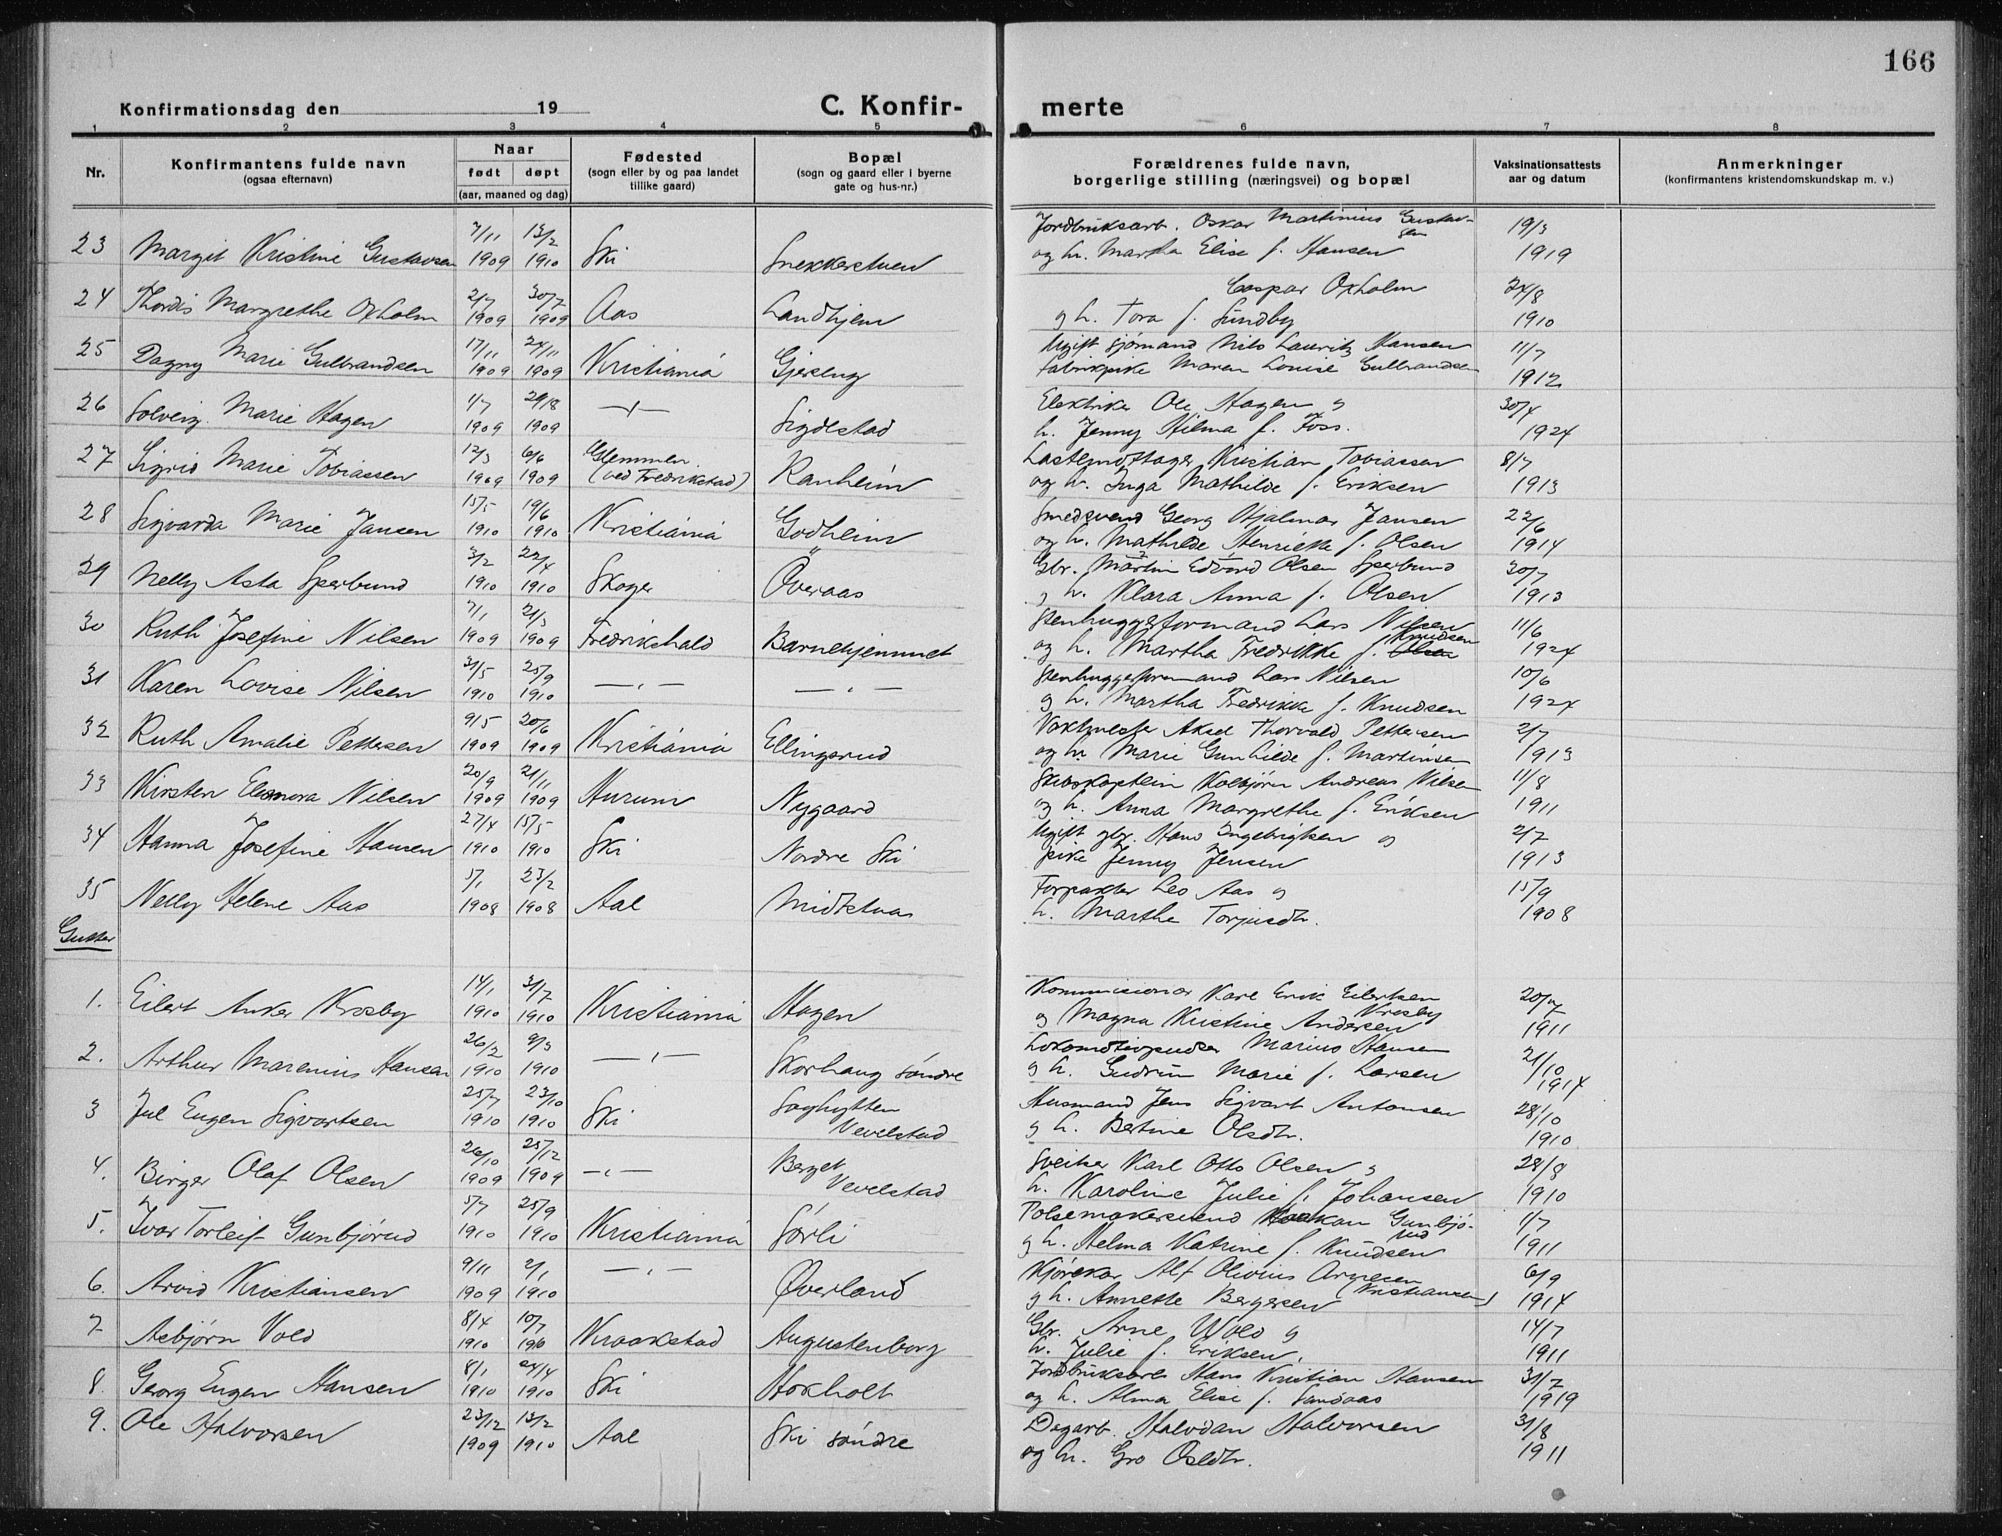 166
Konfirmationsdag den 19
C. Konfir- merte
1 2 3 4 5 6 7 8
Nr.
Konfirmantens fulde navn
(ogsaa efternavn)
Naar
født døpt
(aar, maaned og dag)
Fødested
(sogn eller by og paa landet
tillike gaard)
Bopæl
(sogn og gaard eller i byerne
gate og hus-nr.)
Forældrenes fulde navn,
borgerlige stilling (næringsvei) og bopæl
Vaksinationsattests
aar og datum
Anmerkninger
(konfirmantens kristendomskundskap m. v.)
7/11 13/2 Jordbruksarb. Oskar Martinius Gustav-sen 19/3
23 Margit Kristine Gustavsen 1909 1910 Ski Snekkerstuen og h. Martha Elise f. Hansen 1919
2/7 30/7 Caspar Oxholm 24/8
24 Thordis Margrethe Oxholm 1909 1909 Aas Landhjem og h. Tora f. Sundby 1910
17/11 24/11 Ugift sjømand Nils Lauritz Hansen 11/7
25 Dagny Marie Gulbrandsen 1909 1909 Kristiania Gjerseng fabrikpike Maren Louise Gulbrandsen 1912
1/7 29/8 Elektriker Ole Hagen og 30/4
26 Solveig Marie Hagen 1909 1909 —"— Sigdestad h. Jenny Hilma f. Foss. 1924
12/3 6/6 Glemmen Lastemottager Kristian Tobiassen 8/7
27 Sigrid Marie Tobiassen 1909 1909 (ved Fredrikstad) Ranheim og h. Inga Mathilde f. Eriksen 1913
15/5 19/6 Smedsvend Georg Hjalmar Jansen 22/6
28 Sigvarda Marie Jansen 1910 1910 Kristiania Godheim og h. Mathilde Henriette f. Olsen 1914
3/2 22/4 Gbr. Martin Edvard Olsen Sperbund 30/7
29 Nelly Asta Sperbund 1910 1910 Skoger Överaas og h. Klara Anna f. Olsen 1913
7/1 21/3 Stenhuggerformand Lars Nilsen 11/6
30 Ruth Josefine Nilsen 1909 1909 Fredrikshald Barnehjemmet og h. Martha Fredrikke f. Olsen Knudsen 1924
31/5 25/9 Stenhuggerformand Lars Nilsen 10/6
31 Karen Lovise Nilsen 1910 1910 —"— —"— og h. Martha Fredrikke f. Knudsen 1924
9/5 20/6 Vaktmester Aksel Thorvald Pettersen 2/7
32 Ruth Amalie Pettersen 1909 1909 Kristiania Ellingsrud og h. Marie Gunhilde f. Martinsen 1913
20/9 21/11 Skibskaptein Kolbjørn Andreas Nilsen 11/8
33 Kirsten Eleonora Nilsen 1909 1909 Hurum Nygaard og h. Anna Margrethe f. Eriksen 1911
27/4 15/5 Ugift gbr. Hans Ingebrigtsen og 2/7
34 Hanna Josefine Hansen 1910 1910 Ski Nordre Ski pike Jenny Jensen 1913
5/1 23/2 Forpakter Leo Aas og 15/9
35 Nelly Helene Aas 1908 1908 Aal Midtstuen h. Marthe Torjusdtr. 1908
Gutter
14/1 31/7 Kommissionær Karl Erik Eilertsen Krosby 20/7
1. Eilert Anker Krosby 1910 1910 Kristiania Hagen og Magna Kristine Andersen 1911
26/2 9/3 Lokomotivpudser Marius Hansen 21/10
2. Arthur Marenius Hansen 1910 1910 —"— Skorhaug søndre og h. Gudrun Marie f. Larsen 1914
25/7 23/10 Saghytten Husmand Jens Sigvart Antonsen 28/10
3 Jul Eugen Sigvartsen 1910 1910 Ski Vevelstad og h. Bertine Olsdtr. 1910
26/10 25/12 Berget Sveitser Karl Otto Olsen og 28/8
4. Birger Olaf Olsen 1909 1909 —"— Vevelstad h. Karoline Julie f. Johansen 1910
5/7 25/9 Pølsemakersvend Haakon Gunbjø-rud 1/7
5. Ivar Torleif Gunbjørud 1910 1910 Kristiania Sørli og h. Helma Katrine f. Knudsen 1911
9/11 2/1 Kjørekar Alf Olivius Arnesen (Kristiansen) 6/9
6. Arvid Kristiansen 1909 1910 —"— Øverland og h. Annette Bergersen 1914
8/4 10/7 Gbr. Arne Wold og 14/7
7 Asbjørn Vold 1910 1910 Kraakstad Augustenborg h. Julie f. Eriksen. 1911
8/1 24/4 Jordbruksarb. Hans Kristian Hansen 31/7
8. Georg Eugen Hansen 1910 1910 Ski Hoxholt og h. Alma Elise f. Sandaas 1919
23/12 13/2 Dagarb. Halvdan Halvorsen 31/8
9. Ole Halvorsen 1909 1910 Aal Ski søndre og h. Gro Osldtr. 1911